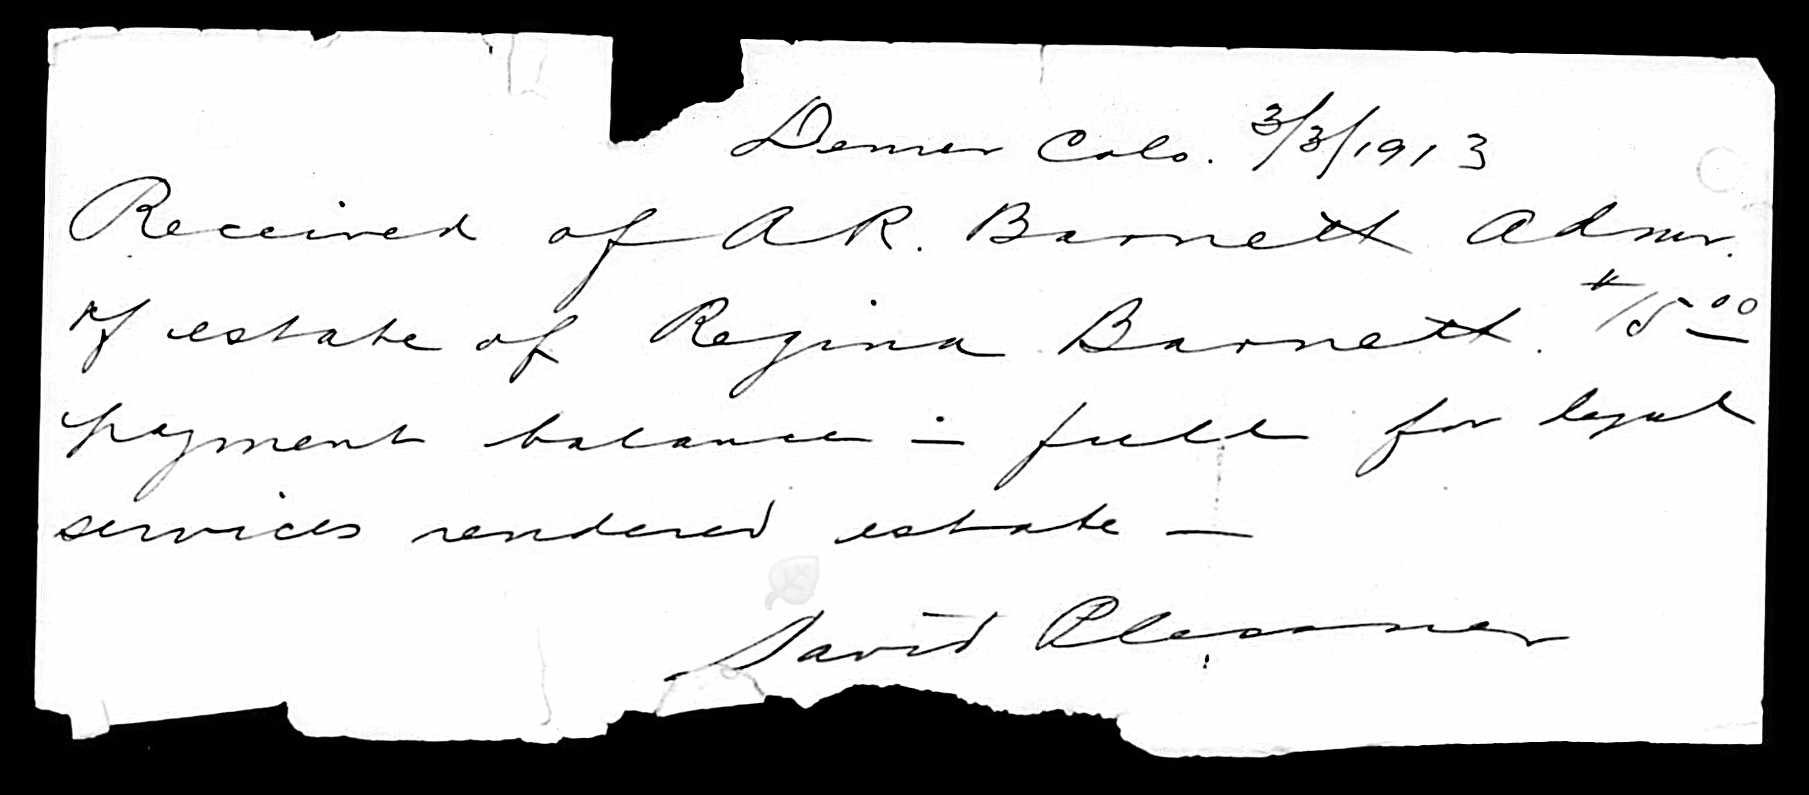 Denver Colo. 3/3/1913
Received of A R. Barnett Admr.
of estate of Regina Barnett. $15 00
payment balance in full for legal
services rendered estate —
David Plessner